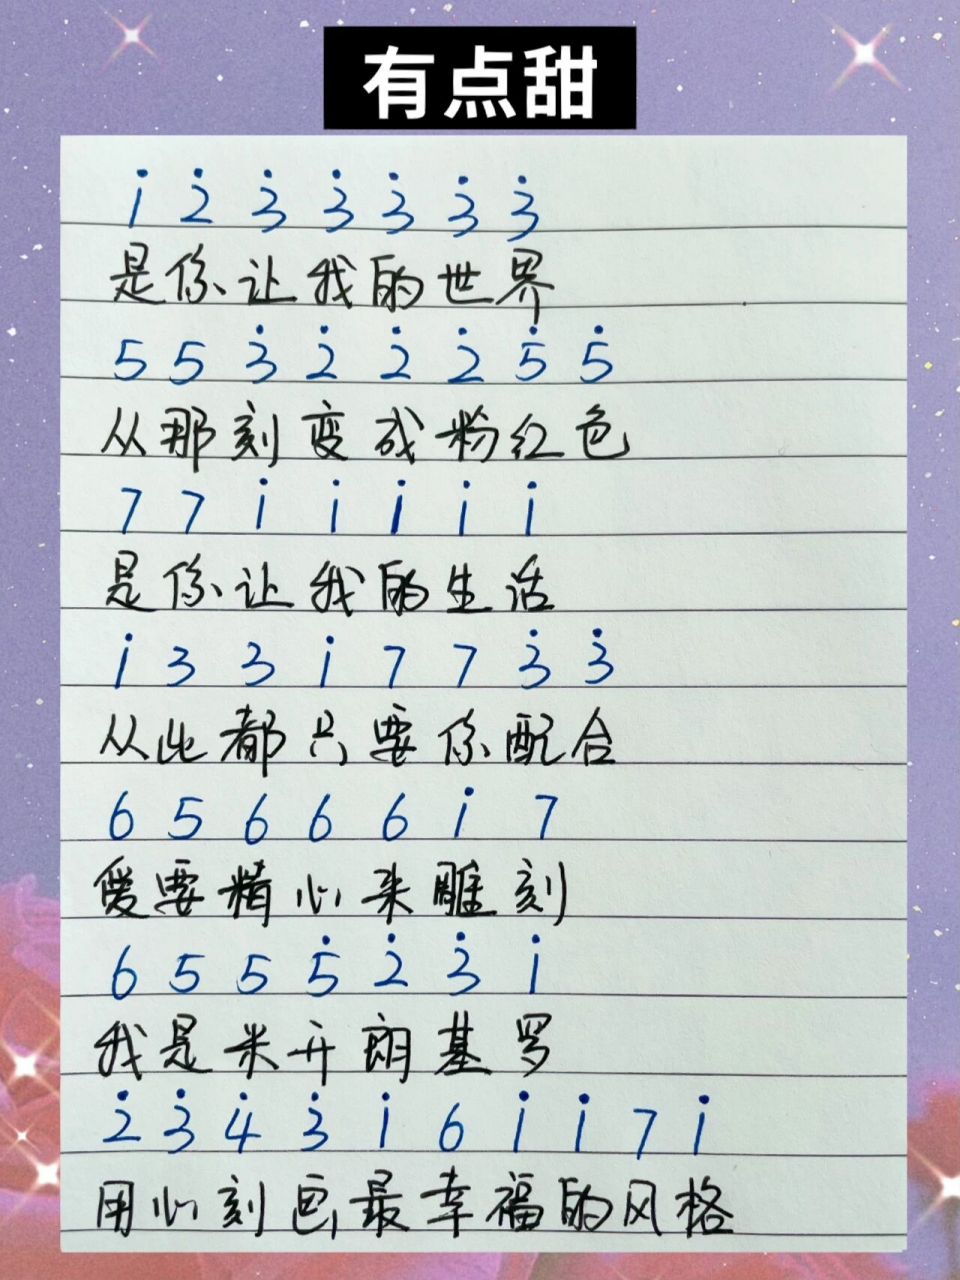 有点甜
i̇ 2̇ 3̇ 3̇ 3̇ 3̇ 3̇
是你让我的世界
5 5 3̇ 2̇ 2̇ 2̇ 5̇ 5̇
从那刻变成粉红色
7 7 i̇ i̇ i̇ i̇ i̇
是你让我的生活
i̇ 3 3 i̇ 7 7 3̇ 3̇
从此都只要你配合
6 5 6 6 6 i̇ 7
爱要精心来雕刻
6 5 5 5̇ 2̇ 3̇ i̇
我是米开朗基罗
2̇ 3̇ 4̇ 3̇ i̇ 6 i̇ i̇ 7 i̇
用心刻画最幸福的风格